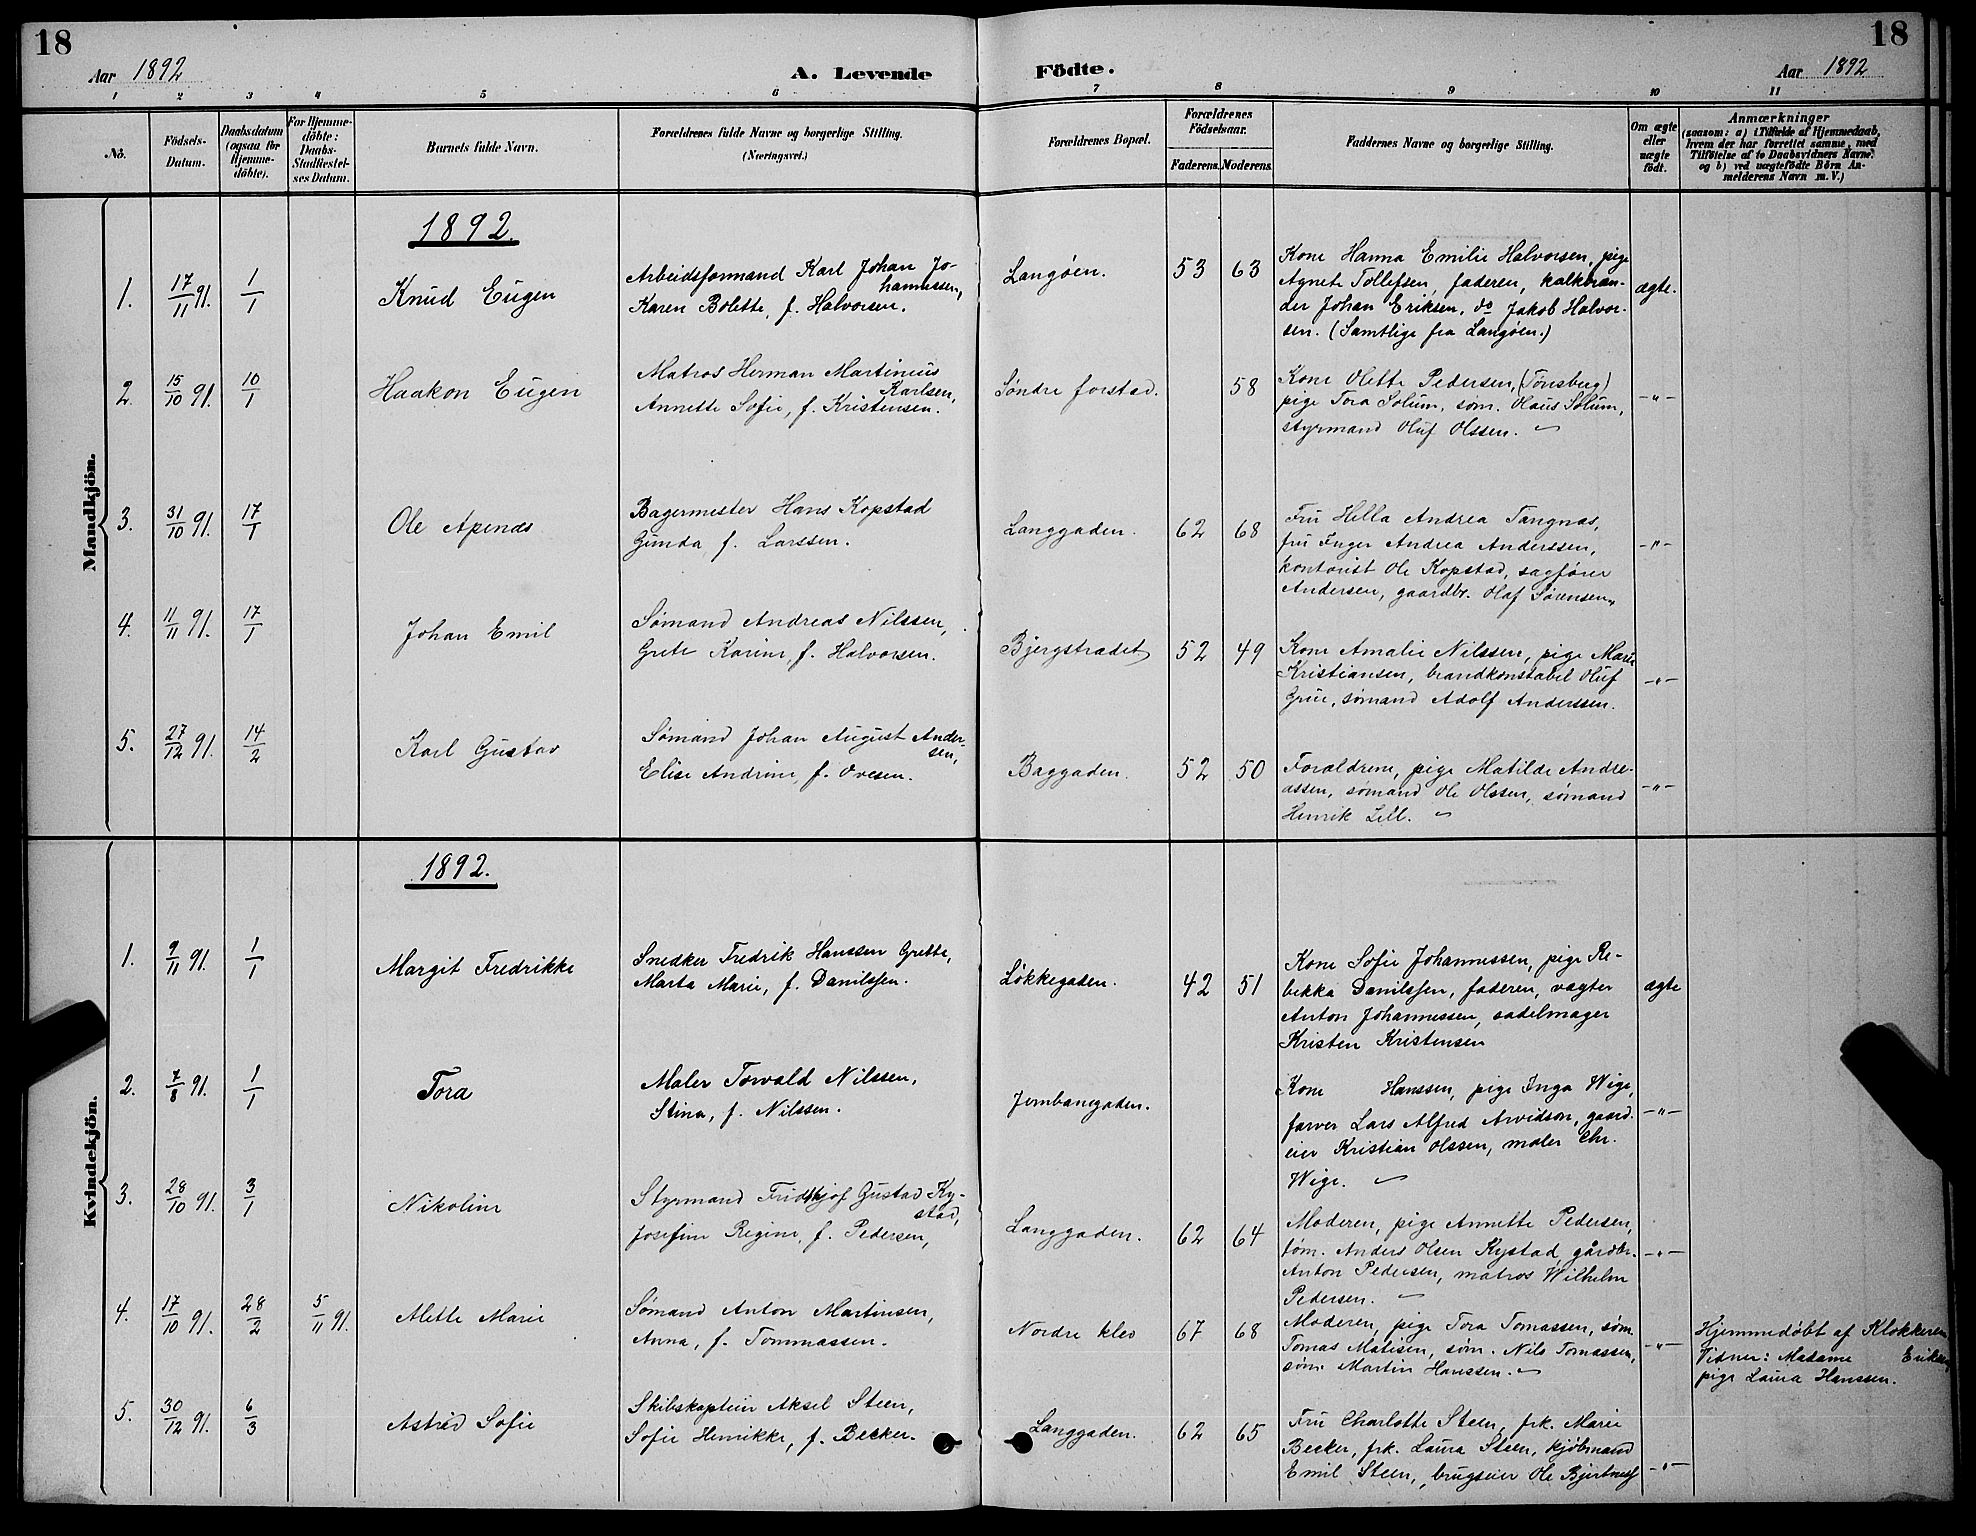 18
Aar 1892
A. Levende
Födte.
18
Aar 1892
1 2 3 4 5 6 7 8 9 10 11
No.
Födsels-
Datum.
Daabsdatum
(ogsaa for
Hjemme-
döbte).
For Hjemme-
döbte:
Daabs-
Stadfæstel-
ses Datum.
Barnets fulde Navn.
Forældrenes fulde Navne og borgerlige Stilling.
(Næringsvei.)
Forældrenes Bopæl.
Forældrenes
Födselsaar.
Faderens.
Moderens.
Faddernes Navne og borgerlige Stilling.
Om ægte
eller
uægte
födt.
Anmærkninger
(saasom: a) i Tilfælde af Hjemmedaab,
hvem der har forrettet samme, med
Tilföielse af to Daabsvidners Navne;
og b) ved uægtefödte Börn An-
melderens Navn m. V.)
Mandkjön.
1892.
1.
17/11 91.
1/1
Knud Eugen
Arbeidsformand Karl Johan Jo-
hannessen,
Karen Bolette, f. Halvorsen.
Langøen.
53
63
Kone Hanna Emilie Halvorsen, pige
Agnete Tollefsen, faderen, kalkbræn-
der Johan Eriksen, do Jakob Halvor-
sen. (Samtlige fra Langøen.)
ægte.
2.
15/10 91.
10/1
Haakon Eugen
Matros Herman Martinius
Karlsen,
Annette Sofie, f. Kristensen.
Søndre forstad.
58
Kone Olette Pedersen, (Tønsberg)
pige Tora Solum, søm. Olaus Solum,
styrmand Oluf Olssen.
-"-
3.
31/10 91.
17/1
Ole Apenæs
Bagermester Hans Kopstad
Gunda f. Larssen.
Langgaden.
62
68
Fru Hella Andrea Tangnæs,
fru Inger Andrea Anderssen,
kontorist Ole Kopstad, sagfører
Andersen, gaardbr. Olaf Sørensen,
-"-
4.
11/11 91.
17/1
Johan Emil
Sømand Andreas Nilssen,
Grete Karine, f. Halvorsen.
Bjergstrædet
52
49
Kone Amalie Nilssen, pige Marie
Kristiansen, brandkonstabel Oluf
Grue, sømand Adolf Anderssen.
-"-
5.
27/12 91.
14/2
Karl Gustav
Sømand Johan August Ander-
sen,
Elise Andrine, f. Ovesen.
Baggaden.
52
50
Forældrene, pige Matilde Andre-
assen, sømand Ole Olssen, sømand
Henrik Lill.
-"-
Kvindekjön.
1892.
1.
9/11 91.
1/1
Margit Fredrikke
Snedker Fredrik Hanssen Grette,
Marta Marie, f. Danilssen.
Løkkegaden.
42
51
Kone Sofie Johannessen, pige Re-
bekka Danilssen, faderen, vægter
Anton Johannessen, sadelmager
Kristen Kristensen
ægte
2.
7/8 91.
1/1
Tora
Maler Torvald Nilssen,
Stina, f. Nilssen.
Jernbanegaden.
Kone Hanssen, pige Inga Wige,
farver Lars Alfred Arvidson, gaard-
eier Kristian Olssen, maler Chr.
Wige.
-"-
3.
28/10 91.
3/1
Nikoline
Styrmand Fridthjof Gustav Ky-
stad,
Josefine Regine, f. Pedersen,
Langgaden.
62
64
Moderen, pige Annette Pedersen,
tøm. Anders Olsen Kystad, gårdbr.
Anton Pedersen, matros Wilhelm
Pedersen.
-"-
4.
17/10 91.
28/2
5/11 91.
Mette Marie
Sømand Anton Martinsen,
Anna, f. Tommassen.
Nordre klev
67
68
Moderen, pige Tora Tomassen, søm.
Tomas Matisen, søm. Nils Tomassen,
søm. Martin Hanssen.
-"-
Hjemmedøbt af Klokkeren
Vidner: Madame Eriksen,
pige Laura Hanssen.
5.
30/12 91.
6/3
Astrid Sofie
Skibskaptein Aksel Steen,
Sofie Henrikke, f. Becker.
Langgaden.
62
65
Fru Charlotte Steen, frk. Marie
Becker, frk. Laura Steen, kjøbmand
Emil Steen, brugseier Ole Bjertnes
-"-